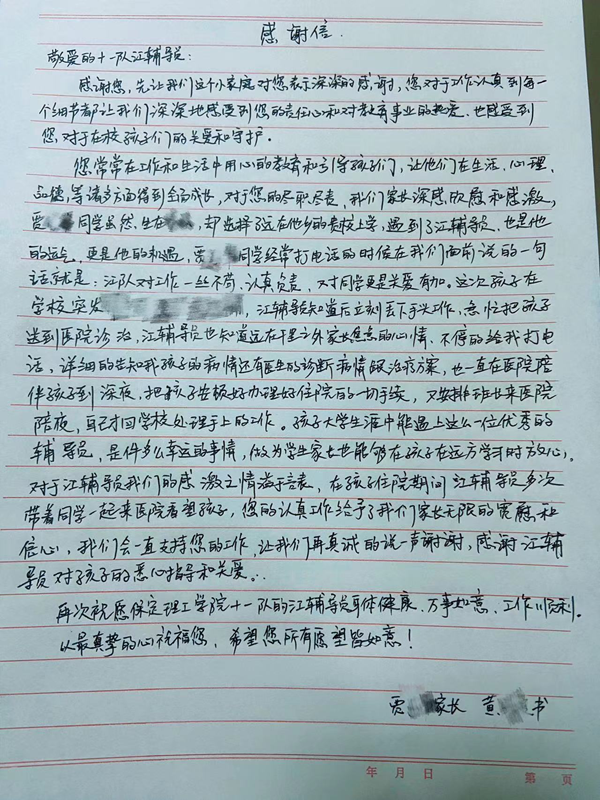 感谢信.
敬爱的十一队江辅导员:
感谢您,先让我们这个小家庭对您表示深深的感谢,您对于工作认真到每一
个细节都让我们深深地感受到您的责任心和对教育事业的热爱.也感受到
您,对于在校孩子们的关爱和守护.
您常常在工作和生活中用心的教育和引导孩子们,让他们在生活、心理、
品德,等诸多方面得到全面成长,对于您的尽职尽责,我们家长深感欣慰和感激,
贾 同学虽然.生在 ,却选择了远在他乡的贵校上学,遇到了江辅导员.也是他
的运气,更是他的机遇,贾 同学经常打电话的时候在我们面前说的一句
话就是:江队对工作一丝不苟,认真负责,对同学更是关爱有加。这次孩子在
学校突发 ,江辅导员知道后立刻丢下手头工作,急忙把孩子
送到医院诊治,江辅导员也知道远在千里之外家长焦急的心情、不停的给我打电
话,详细的告知我孩子的病情还有医生的诊断病情跟治疗方案,也一直在医院陪
伴孩子到深夜,把孩子安板好办理好住院的一切手续,又安排班长来医院
陪夜,自己才回学校处理手上的工作。孩子大学生涯中能遇上这么一位优秀的
辅导员,是件多么幸运的事情,做为学生家长也能够在孩子在远方学习时放心,
对于江辅导员我们的感激之情溢于言表,在孩子住院期间江辅导员多次
带着同学一起来医院看望孩子,您的认真工作给予了我们家长无限的宽慰和
信心,我们会一直支持您的工作,让我们再真诚的说一声谢谢,感谢江辅
导员对孩子的悉心指导和关爱。.
再次祝愿保定理工学院十一队的江辅导员身体健康、万事如意、工作顺利。
以最真挚的心祝福您,希望您所有愿望皆如意!
贾 家长 黄 书
年 月 日 第 页